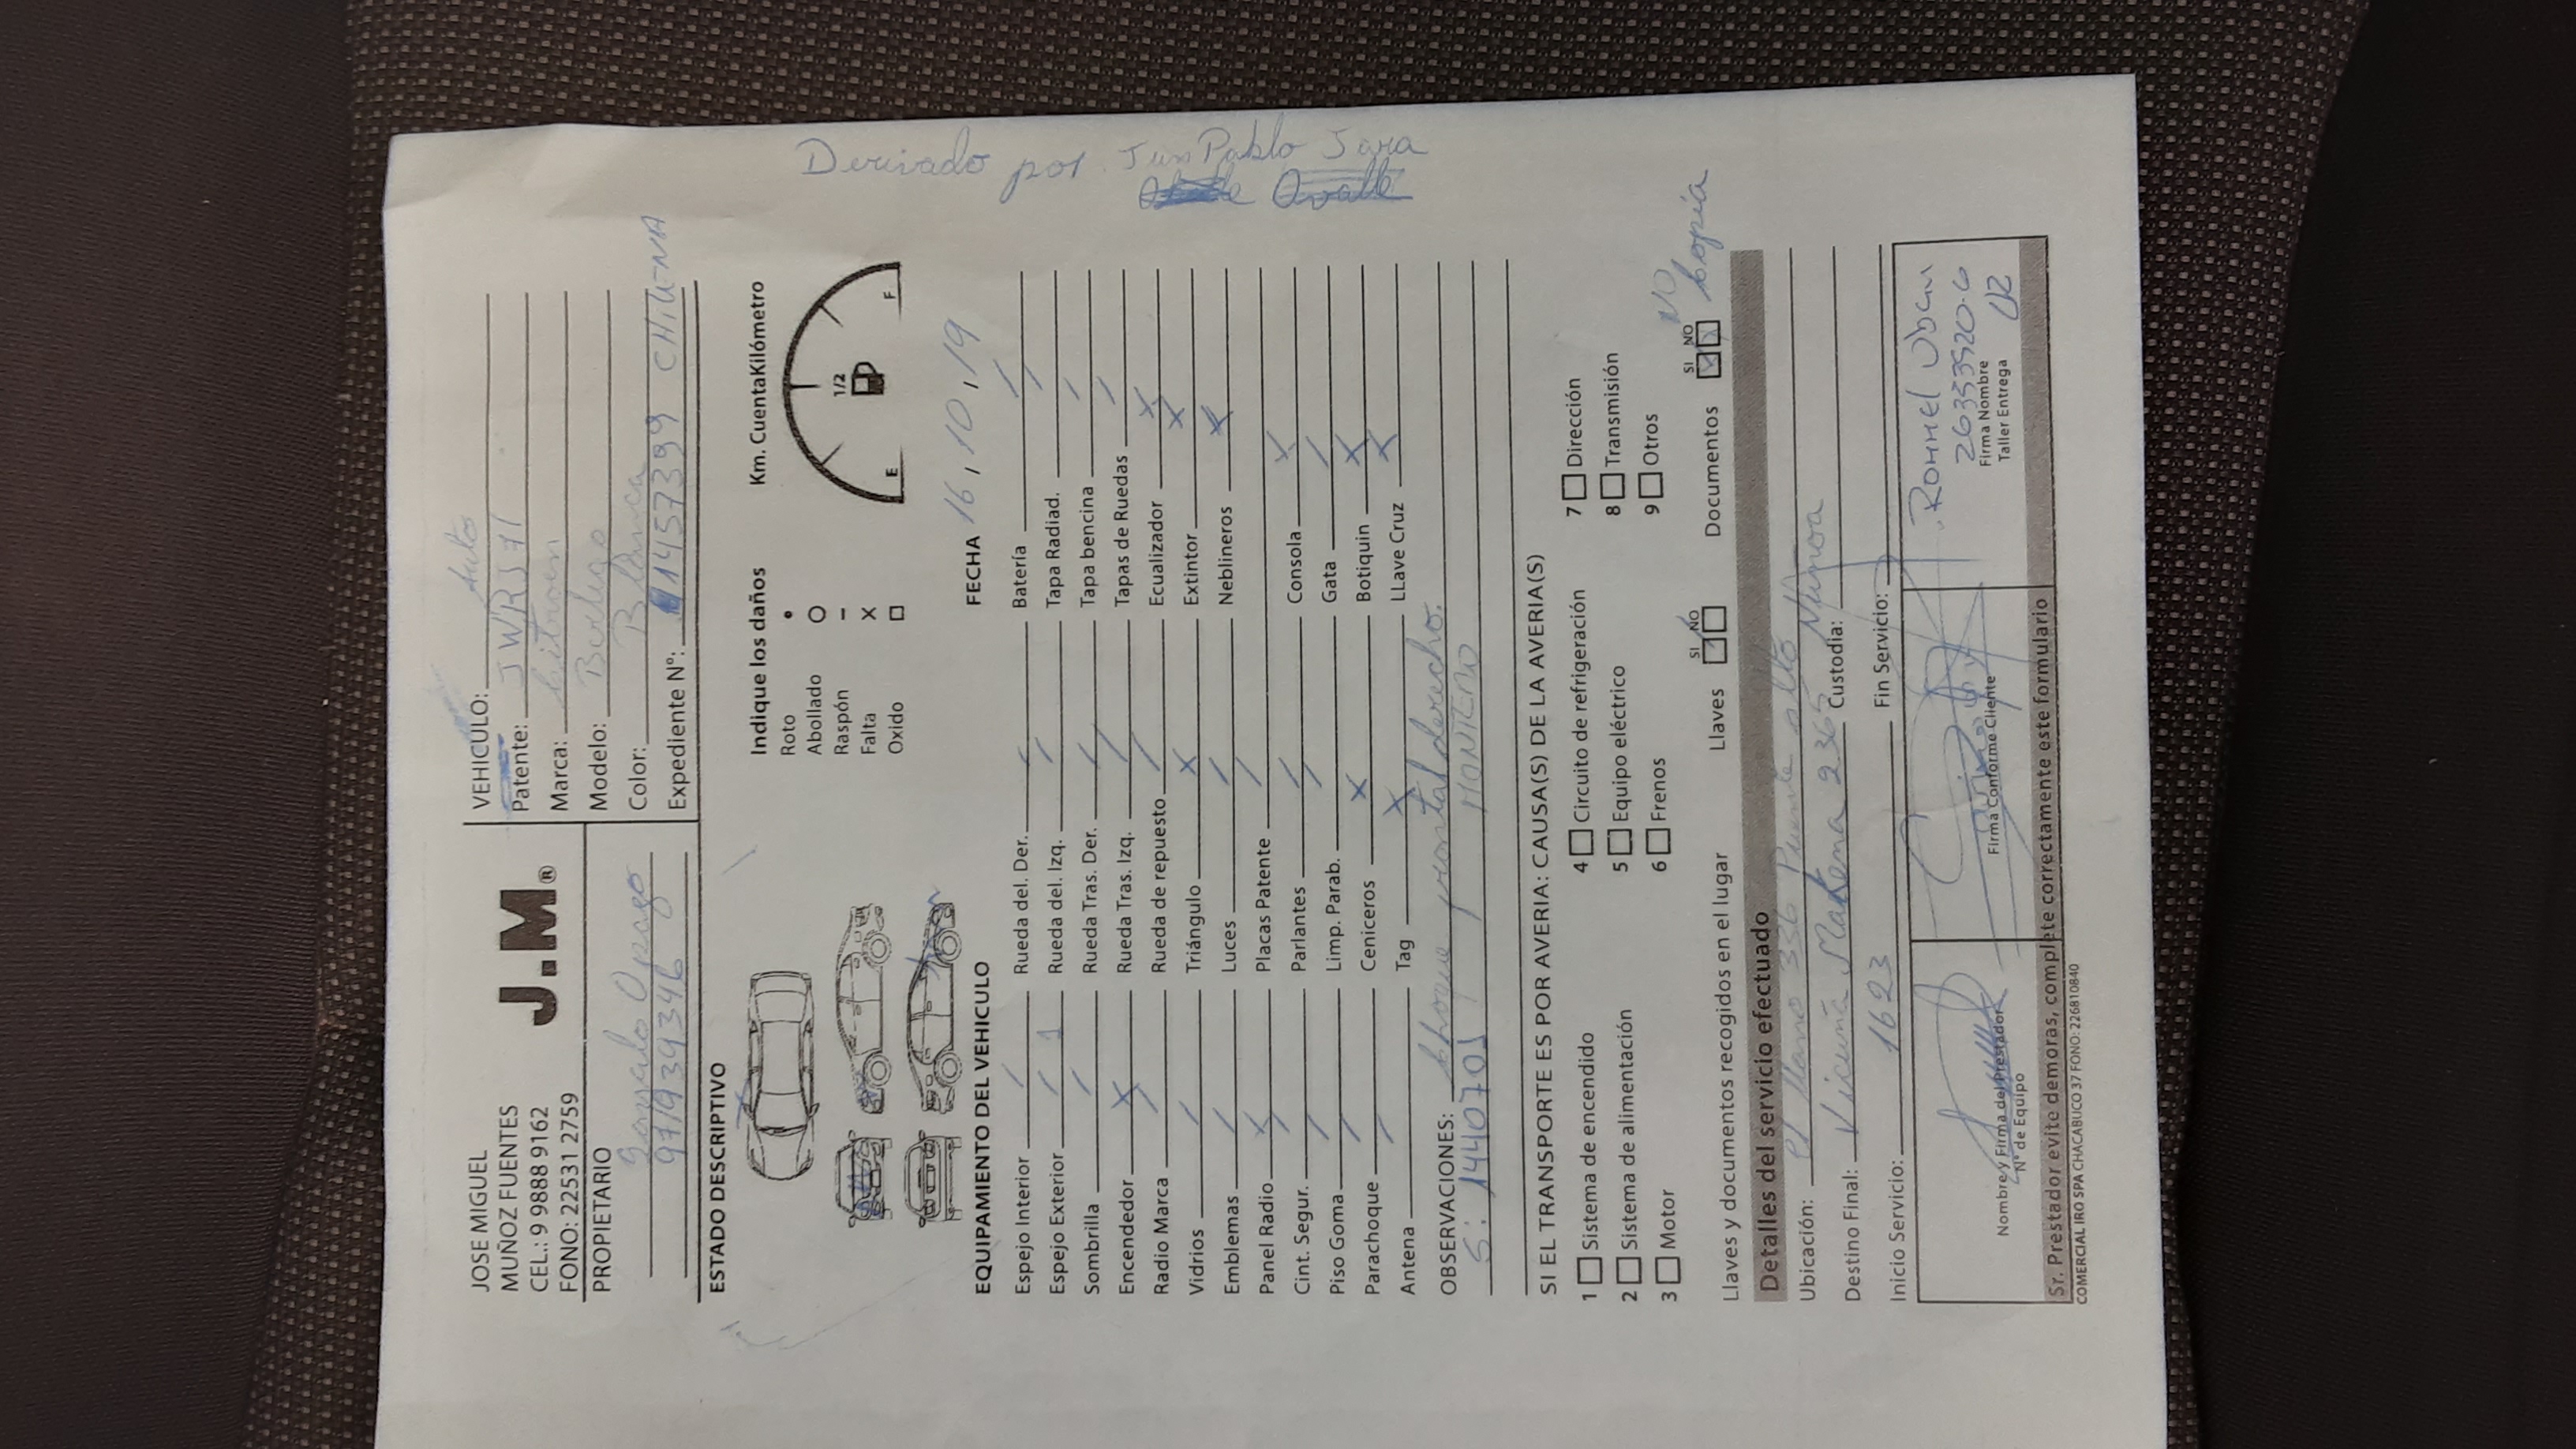 Derivado por Jun Pablo Jara
JOSE MIGUEL
MUÑOZ FUENTES
CEL.: 9 9888 9162
FONO: 22531 2759
J.M®
PROPIETARIO
Gonzalo
979393946
VEHICULO: Auto
Patente: JWRJ71
Marca: Citroen
Modelo: Berlingo
Color: Blanca
Expediente N°: 11457399 CHILENA
ESTADO DESCRIPTIVO
Indique los daños
Roto •
Abollado O
Raspón –
Falta x
Oxido □
Km. CuentaKilómetro
E 1/2 F
FECHA 16, 10, 19
EQUIPAMIENTO DEL VEHICULO
Espejo Interior / Rueda del. Der. / Batería /
Espejo Exterior / 1 Rueda del. Izq. / Tapa Radiad. /
Sombrilla / Rueda Tras. Der. / Tapa bencina /
Encendedor X Rueda Tras. Izq. / Tapas de Ruedas /
Radio Marca / Rueda de repuesto / Ecualizador X
Vidrios / Triángulo X Extintor X
Emblemas / Luces / Neblineros X
Panel Radio X Placas Patente /
Cint. Segur. / Parlantes / Consola X
Piso Goma / Limp. Parab. Gata /
Parachoque / Ceniceros X Botiquin X
Antena Tag X LLave Cruz X
OBSERVACIONES: choque frontal derecho.
S: 14407701 MONTERO
SI EL TRANSPORTE ES POR AVERIA: CAUSA(S) DE LA AVERIA(S)
1 Sistema de encendido 4 Circuito de refrigeración 7 Dirección
2 Sistema de alimentación 5 Equipo eléctrico 8 Transmisión
3 Motor 6 Frenos 9 Otros
Llaves y documentos recogidos en el lugar Llaves SI NO Documentos SI NO NO copia
Detalles del servicio efectuado
Ubicación: el llano 356 Puente alto
Destino Final: Vicuña Makena 2365 Ñuñoa Custodia:
Inicio Servicio: 1623 Fin Servicio:
Rommel
26335920-6
Nombre y Firma del Prestador
N° de Equipo
Firma Conforme Cliente
Firma Nombre
Taller Entrega
Sr. Prestador evite demoras, complete correctamente este formulario
COMERCIAL IRO SPA CHACABUCO 37 FONO: 226810840